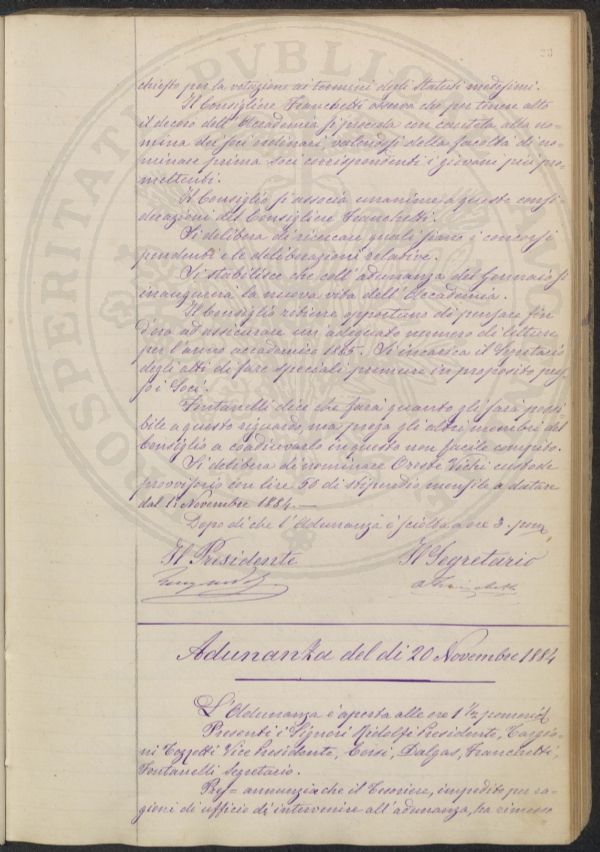 33
chiesto per la votazione ai termini degli Statuti medesimi.
Il Consigliere Franchetti osserva che per tenere alto
il decoro dell'Accademia si proceda con cautela alla no-
mina dei soci ordinari, valendosi della facoltà di no-
minare prima soci corrispondenti i giovani più pro-
mettenti.
Il Consiglio si associa unanime a queste consi-
derazioni del Consigliere Franchetti.
Si delibera di ricercare quali sieno i concorsi
pendenti e le deliberazioni relative.
Si stabilisce che coll'adunanza del Gennaio si
inaugurerà la nuova vita dell'Accademia.
Il Consiglio ritiene opportuno di pensare fin
d'ora ad assicurare un adeguato numero di letture
per l'anno accademico 1885. Si incarica il Segretario
degli atti di fare speciali premure in proposito pres-
so i Soci.
Fontanelli dice che farà quanto gli sarà possi-
bile a questo riguardo, ma prega gli altri membri del
Consiglio a coadiuvarlo in questo non facile compito.
Si delibera di nominare Oreste Vichi custode
provvisorio con lire 50 di stipendio mensile a datare
dal 1º Novembre 1884.—
Dopo di che l'Adunanza è sciolta a ore 3. pom
Il Presidente Il Segretario
Adunanza del dì 20 Novembre 1884
L'Adunanza è aperta alle ore 1 ½ pomerid
Presenti i Signori Ridolfi Presidente, Targio-
ni Tozzetti Vice Presidente, Corsi, Dalgas, Franchetti,
Fontanelli Segretario.
annunzia che il Tesoriere, impedito per ra-
gioni di ufficio di intervenire all'adunanza, ha rimesso
PROSPERITATI PUBLICAE AUG